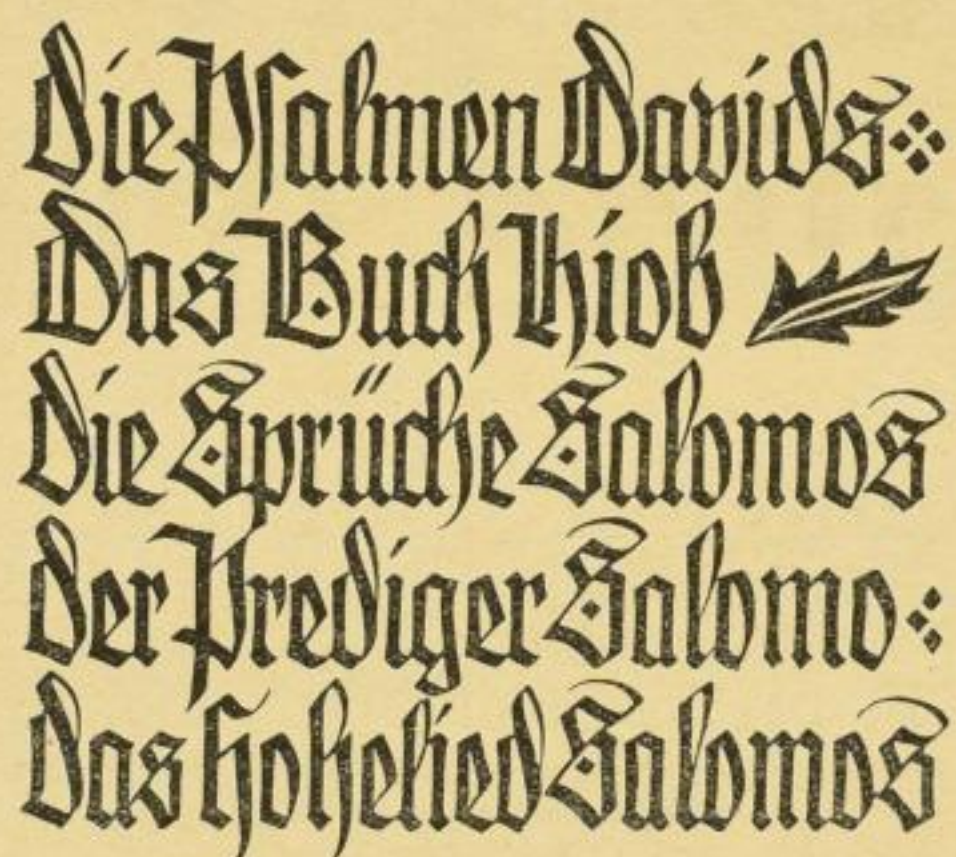 die Psalmen Davids
Das Buch Hiob
die Sprüche Salomos
der Prediger Salomo
das Hohelied Salomos